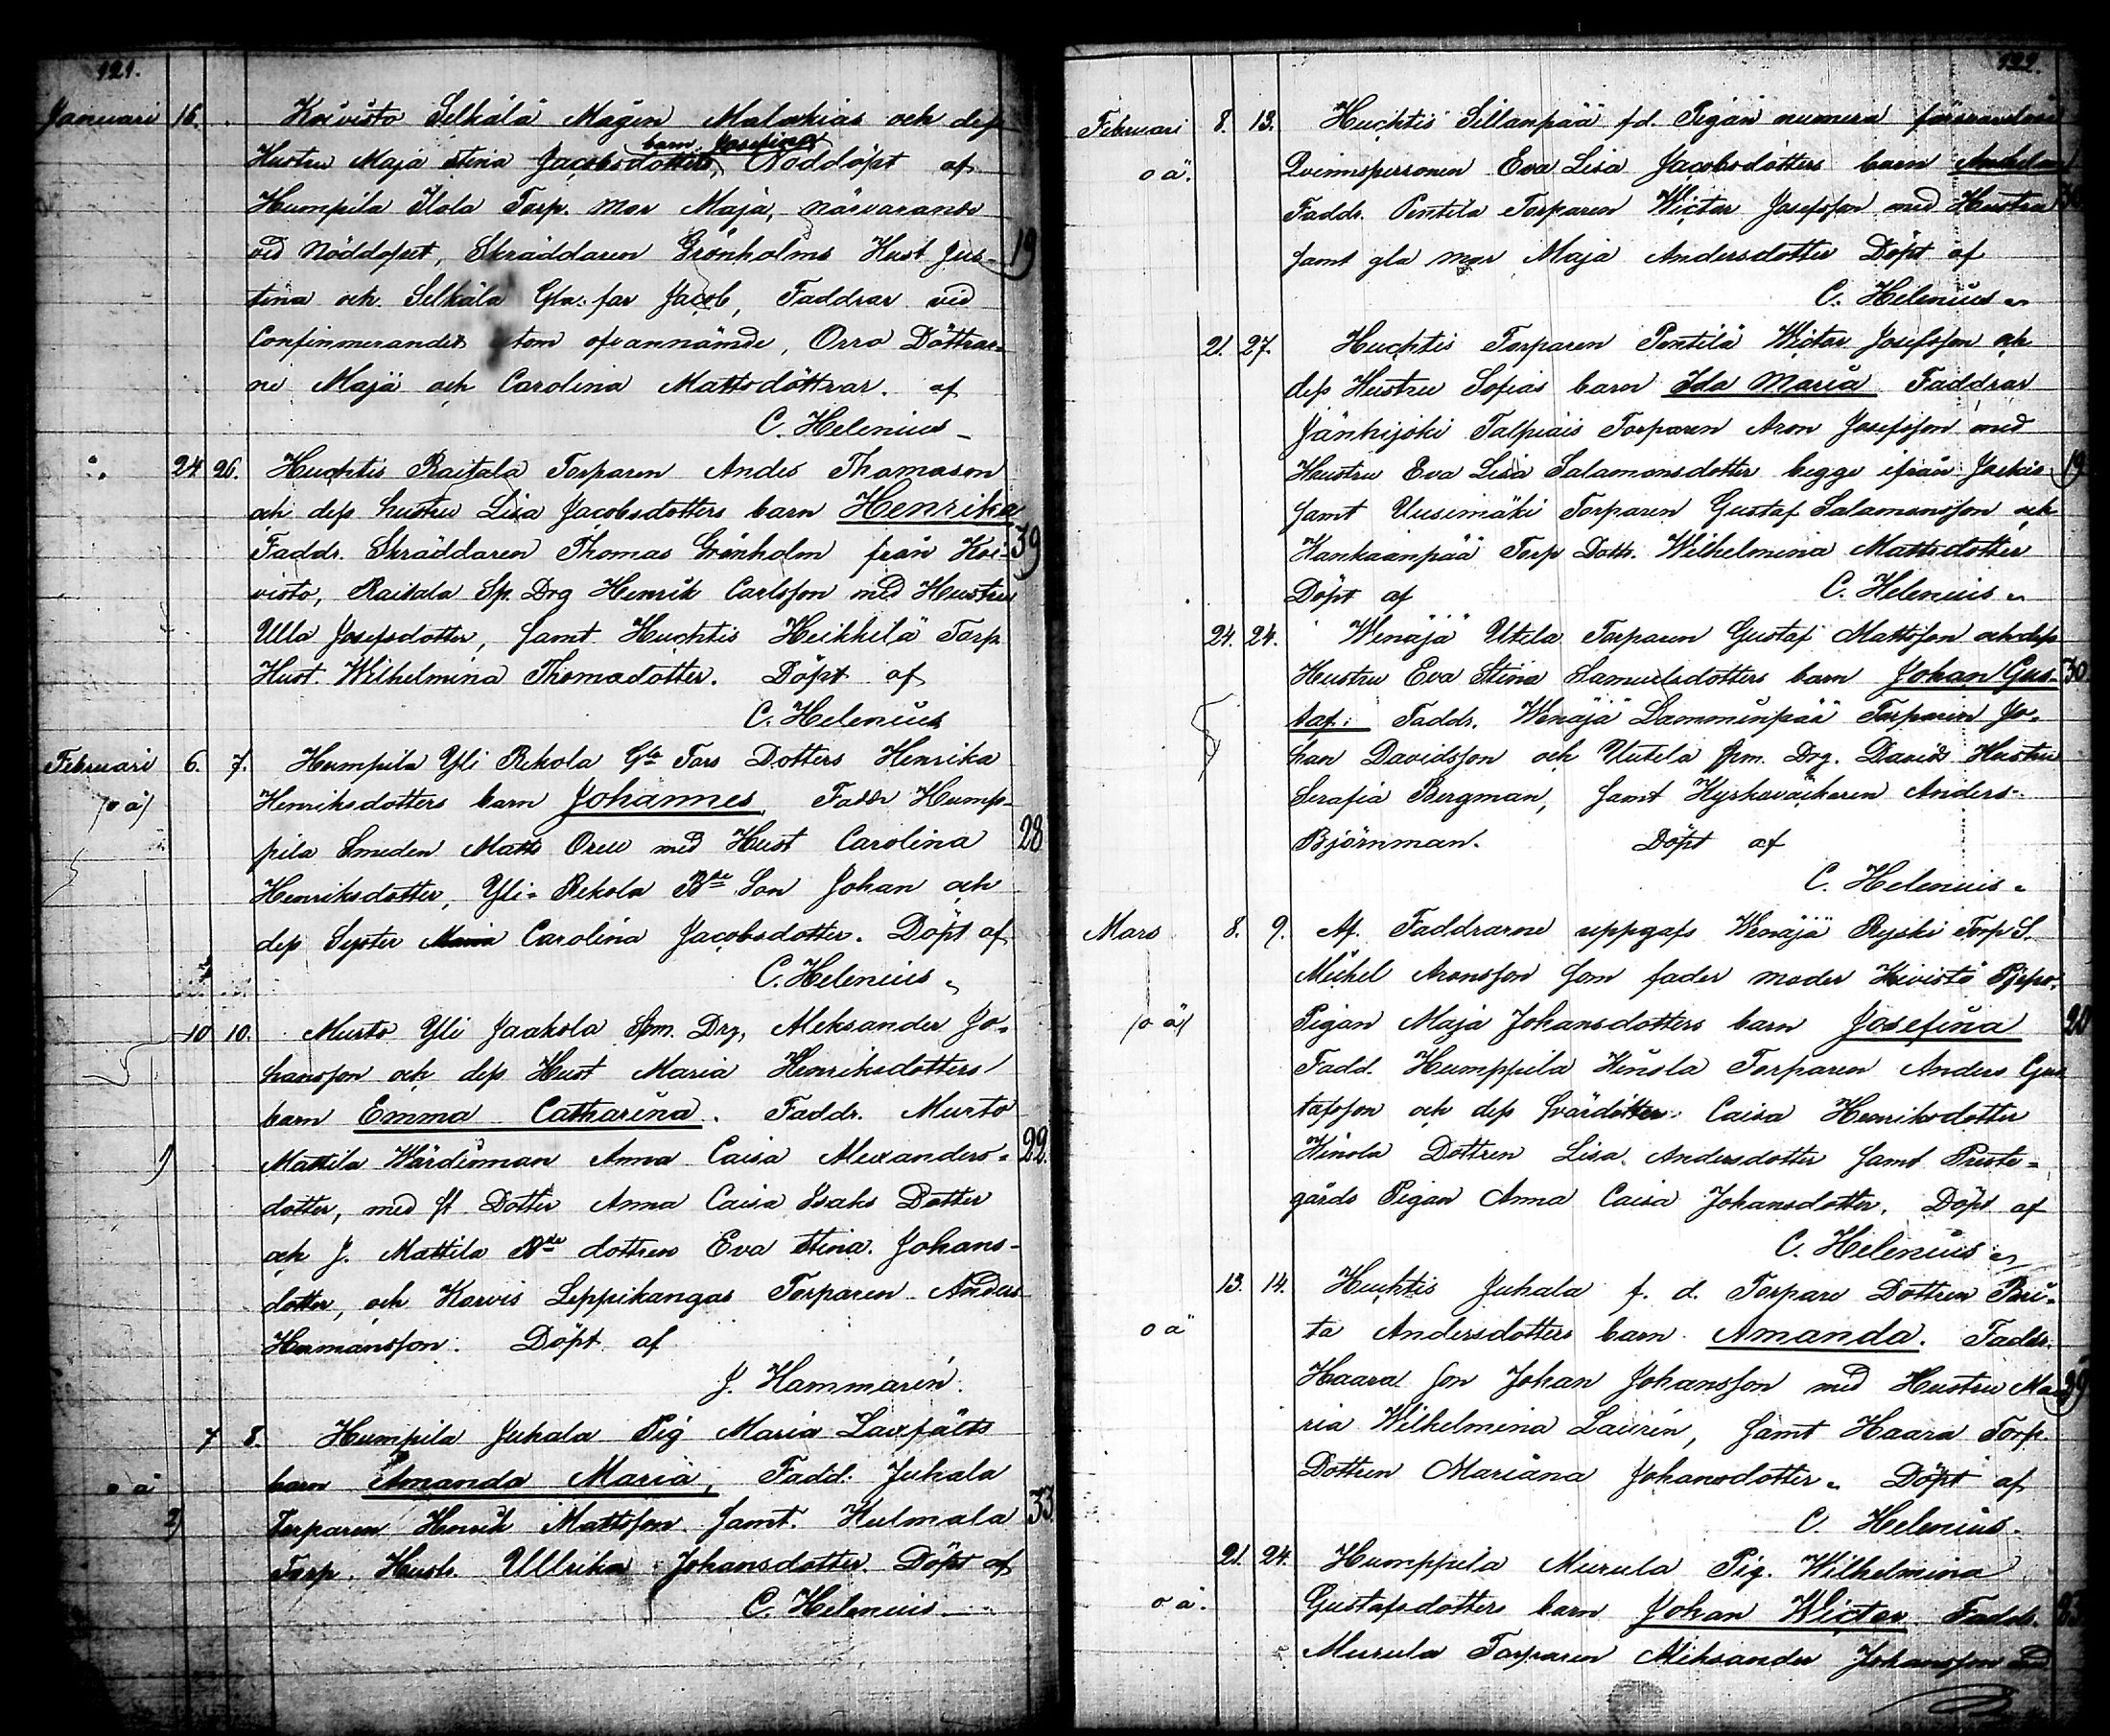 121.
Januari 16. Koivisto Selkälä Mågen Malakias och dess
barn Josefina
Hustru Maja Stina Jacobsdotters, Nöddöpt af
Humpila Ilola Torp. Mor Maja, närvarande
vid Nöddopet, Skräddaren Grönholms Hust Jus- 19
tina och Selkälä Gla. far Jacob, Faddrar vid
Confirmerandet utom ofvannämde, Orro Döttrar-
ne Maja och Carolina Mattsdöttrar. af
C. Helenius
24 26. Huchtis Raitala Torparen Andes Thomasson
och dess hustru Lisa Jacobsdotters barn Henrika
Faddr. Skräddaren Thomas Grönholm från Koi- 39
visto, Raitala Sp. Drg Henrik Carlsson med Hustru
Ulla Josefsdotter, samt Huchtis Heikkilä Torp.
Hust. Wilhelmina Thomasdotter. Döpt af
C. Helenius
Februari 6. 7. Humpila Yli Rekola Gla Fars Dotters Henrika
/o ä/ Henriksdotters barn Johannes, Faddr Hump-
pila Smeden Matts Oreu med Hust Carolina 28
Henriksdotter, Yli-Rekola Bde Son Johan och
dess Syster Carolina Jacobsdotter. Döpt af
C. Helenius
10 10. Murto Yli Jaakola Spm. Drg, Aleksander Jo-
hansson och dess Hust Maria Henriksdotters
barn Emma Catharina. Faddr. Murto
1) Mattila Wärdinnan Anna Caisa Alexanders- 22.
dotter, med st Dotter Anna Caisa Isaks Dotter
och J. Mattila Bde dottren Eva Stina Johans-
dotter, och Korvis Leppikangas Torparen Anders
Hermansson. Döpt af
J. Hammarén.
7 8. Humpila Juhala Pig Maria Laxfälts
o ä barn Amanda Maria, Fadd. Juhala
2) Torparen Henrik Mattsson samt Hulmala 33.
Torp. Hustr. Ullrika Johansdotter. Döpt af
C. Helenius
122.
Februari 8. 13. Huchtis Sillanpää fd. Pigan numera försvarslösa
o ä. Qvinnspersonen Eva Lisa Jacobsdotters barn
Faddr. Pentilä Torparen Wictor Josefsson med Hustru
samt gla mor Maja Andersdotter Döpt af
C. Helenius
21. 27. Huchtis Torparen Pentilä Wictor Josefsson och
dess Hustru Sofias barn Ida Maria Faddrar
Jänhijoki Talpiais Torparen Aron Josefsson med
Hustru Eva Lisa Salamonsdotter begge ifrån Jockis 19
samt Uusimäki Torparen Gustaf Salamonsson och
Kankaanpää Torp Dottr. Wilhelmina Mattsdotter
Döpt af C. Helenius
24. 24. Wenäjä Utila Torparen Gustaf Mattsson och dess
Hustru Eva Stina Samuelsdotters barn Johan Gus- 30.
taf. Fadds. Wenäjä Lamminpää Torparen Jo-
han Davidsson och Uutila Spm. Drg. David Hustru
Serafia Bergman, samt Kyrkoväktaren Anders
Björnman. Döpt af
C. Helenius
Mars 8. 9. Af Faddrarne uppgafs Wenäjä Ryski Torp S.
Mickel Aronsson som fader moder Kivistö
/o ä/ Pigan Maja Johansdotters barn Josefina 20
Fadd. Humppila Kinola Torparen Anders Gus
tafsson och dess Svärdotter Caisa Henriksdotter
Kinola Dottren Lisa Andersdotter samt Preste-
gårds Pigan Anna Caisa Johansdotter. Döpt af
C. Helenius
13. 14. Huchtis Juhala f. d. Torpare Dottren Bri-
o ä ta Andersdotters barn Amanda. Faddr.
Haara Son Johan Johansson med Hustru Ma- 39
ria Wilhelmina Laurén, samt Haara Torp.
Dottren Mariana Johansdotter. Döpt af
C. Helenius.
21. 24. Humppila Murula Pig. Wilhelmina
o ä. Gustafsdotters barn Johan Wictor Fadds.
Murula Torparen Aleksander Johansson